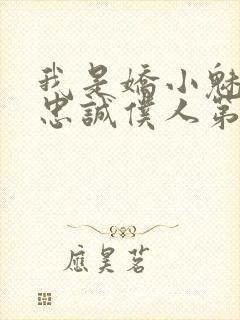 我是嬌小魅
忠誠僕人第
應昊茗